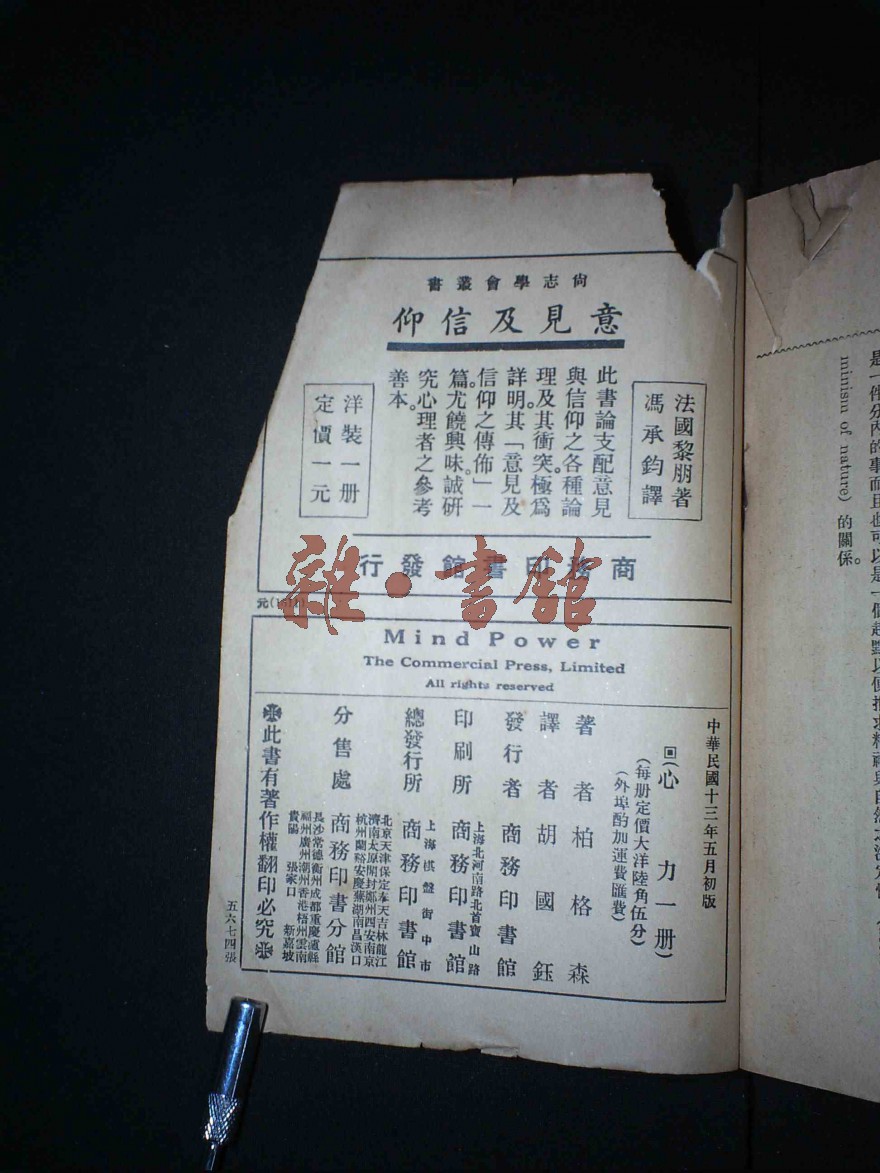 尙志學會叢書
意見及信仰
法國黎朋著
馮承鈞譯
此書論支配意見
與信仰之各種論
理及其衝突。極爲
詳明。其「意見及
信仰之傳佈」一
篇。尤饒興味。誠研
究心理者之參考
善本。
洋裝一册
定價一元
商務印書館發行
雜·書館
Mind Power
The Commercial Press, Limited
All rights reserved
中華民國十三年五月初版
回(心力一册)
(每册定價大洋陸角伍分)
(外埠酌加運費匯費)
著者 柏格森
譯者 胡國鈺
發行者 商務印書館
上海北河南路北首寶山路
印刷所 商務印書館
上海棋盤街中市
總發行所 商務印書館
北京天津保定奉天吉林龍江
濟南太原開封鄭州西安南京
杭州蘭谿安慶蕪湖南昌漢口
分售處 商務印書分館
長沙常德衡州成都重慶瀘縣
福州廣州潮州香港梧州雲南
貴陽 張家口 新嘉坡
此書有著作權翻印必究
五六七四張
是一件分內的事而且也可以是一個起點以便推求精神與自然之
minism of nature) 的關係。